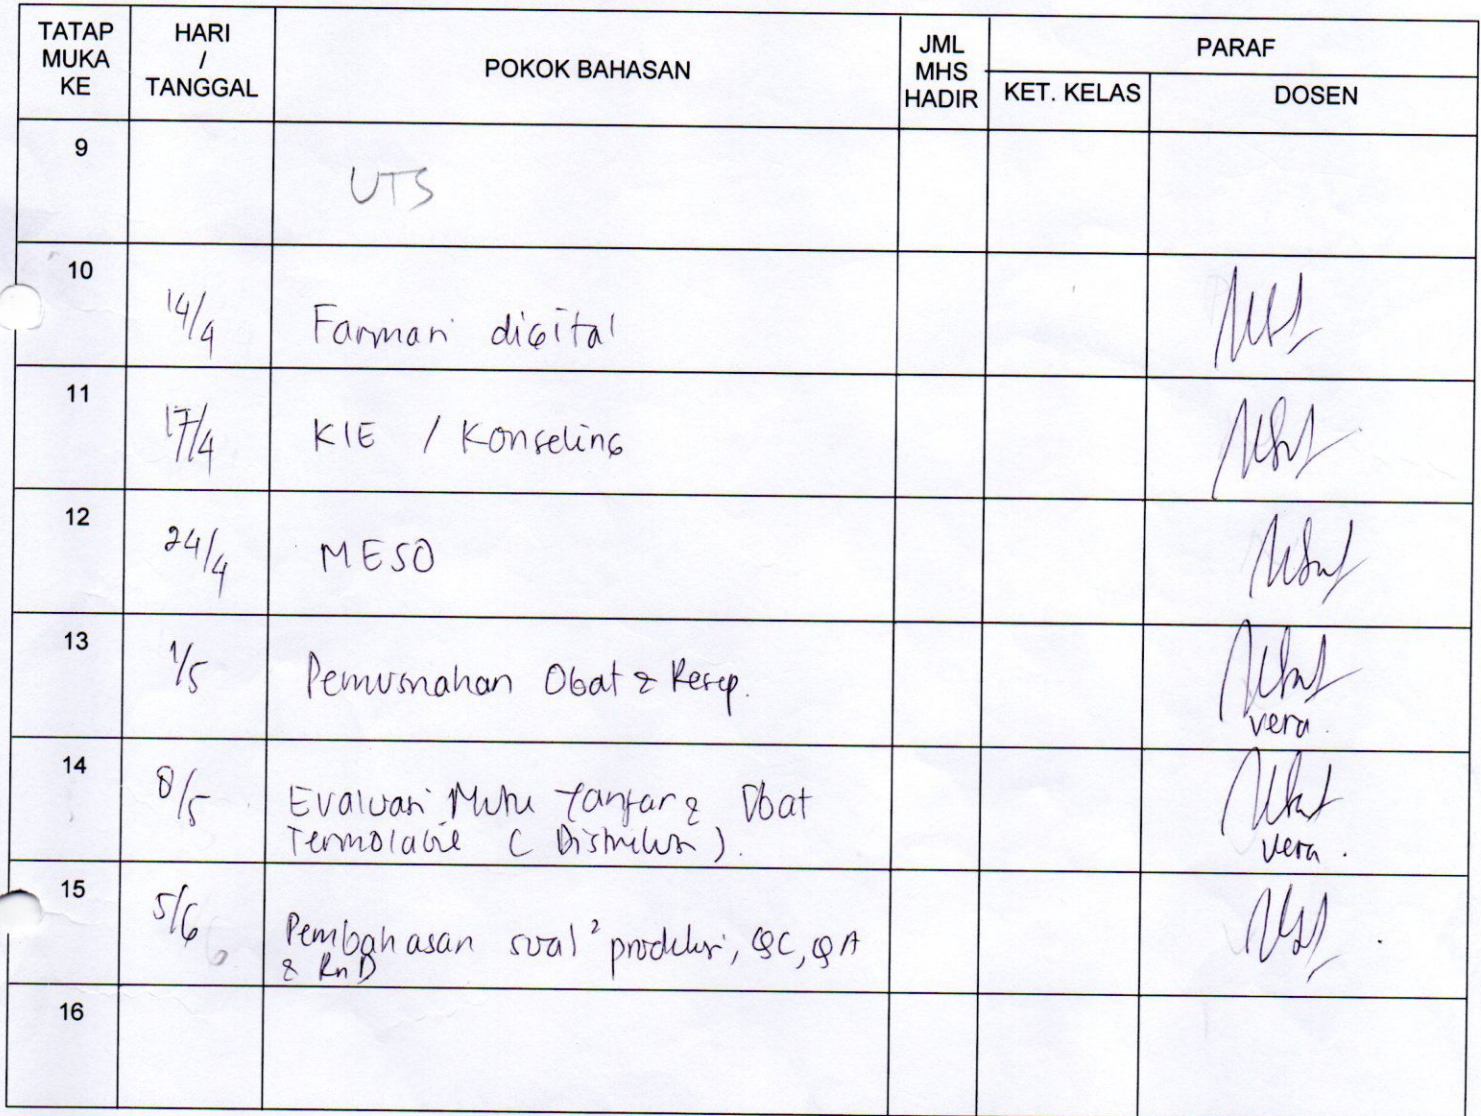 TATAP MUKA KE HARI / TANGGAL POKOK BAHASAN JML MHS HADIR PARAF
KET. KELAS DOSEN
9 UTS
10 14/4 Farmasi digital
11 17/4 KIE / Konseling
12 24/4 MESO
13 1/5 Pemusnahan Obat & Resep.
vera.
14 8/5 Evaluasi Mutu & Obat
Termolabil (Distribusi).
vera.
15 5/6 Pembahasan soal² produksi, QC, QA
& RnD
16